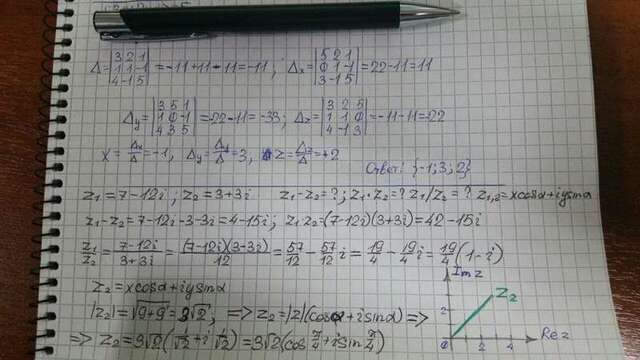 Δ=|3 2 1; 1 1 -1; 4 -1 5| = -11+11-11=-11 ; Δx=|5 2 1; 0 1 -1; 3 -1 5| =22-11=11
Δy=|3 5 1; 1 0 -1; 4 3 5| =-22-11=-33; Δz=|3 2 5; 1 1 0; 4 -1 3| =-11-11=-22
x = Δx/Δ = -1, Δy = Δy/Δ = 3, z = Δz/Δ = +2
Ответ: {-1; 3; 2}
z₁=7-12i; z₂=3+3i z₁-z₂=?; z₁·z₂=? z₁/z₂=? z₁,₂=xcosα+iysinα
z₁-z₂=7-12i-3-3i=4-15i; z₁z₂=(7-12i)(3+3i)=42-15i
z₁/z₂ = 7-12i/3+3i = (7-12i)(3-3i)/12 = 57/12 - 57/12 i = 19/4 - 19/4 i = 19/4 (1-i)
z₂=xcosα+iysinα
|z₂|=√9+9=3√2; => z₂=|z|(cosα+isinα)=>
=> z₂=3√2(√2+i√2)=3√2(cos π/4 + i sin π/4)
Im z
z₂
2
0 2 4
Re z